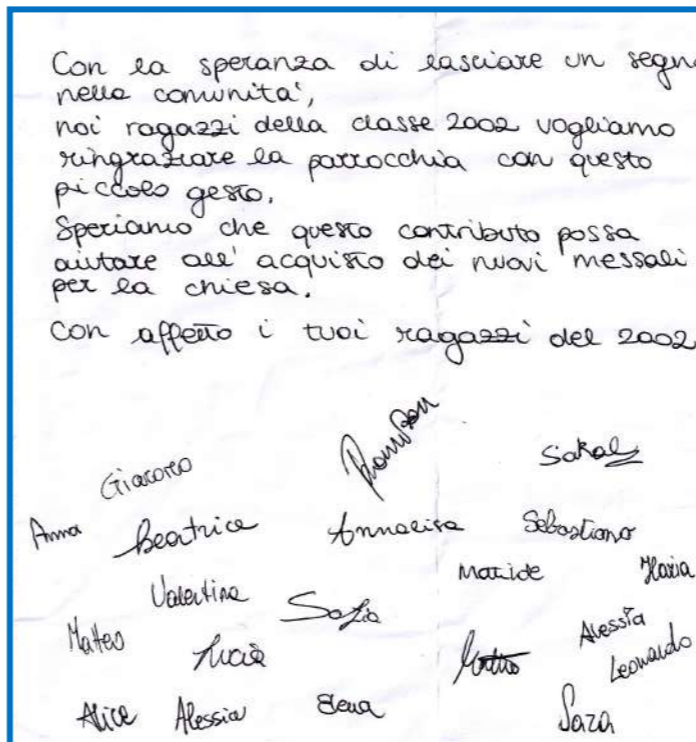 Con la speranza di lasciare un segno
nella comunita',
noi ragazzi della classe 2002 vogliamo
ringraziare la parrocchia con questo
piccolo gesto.
Speriamo che questo contributo possa
aiutare all'acquisto dei nuovi messali
per la chiesa.
Con affetto i tuoi ragazzi del 2002
Giacomo
Anna Beatrice Annalisa Sebastiano
Valentina Matilde Ilaria
Matteo Sofia Alessia
Lucia Leonardo
Alice Alessia Elena Sara